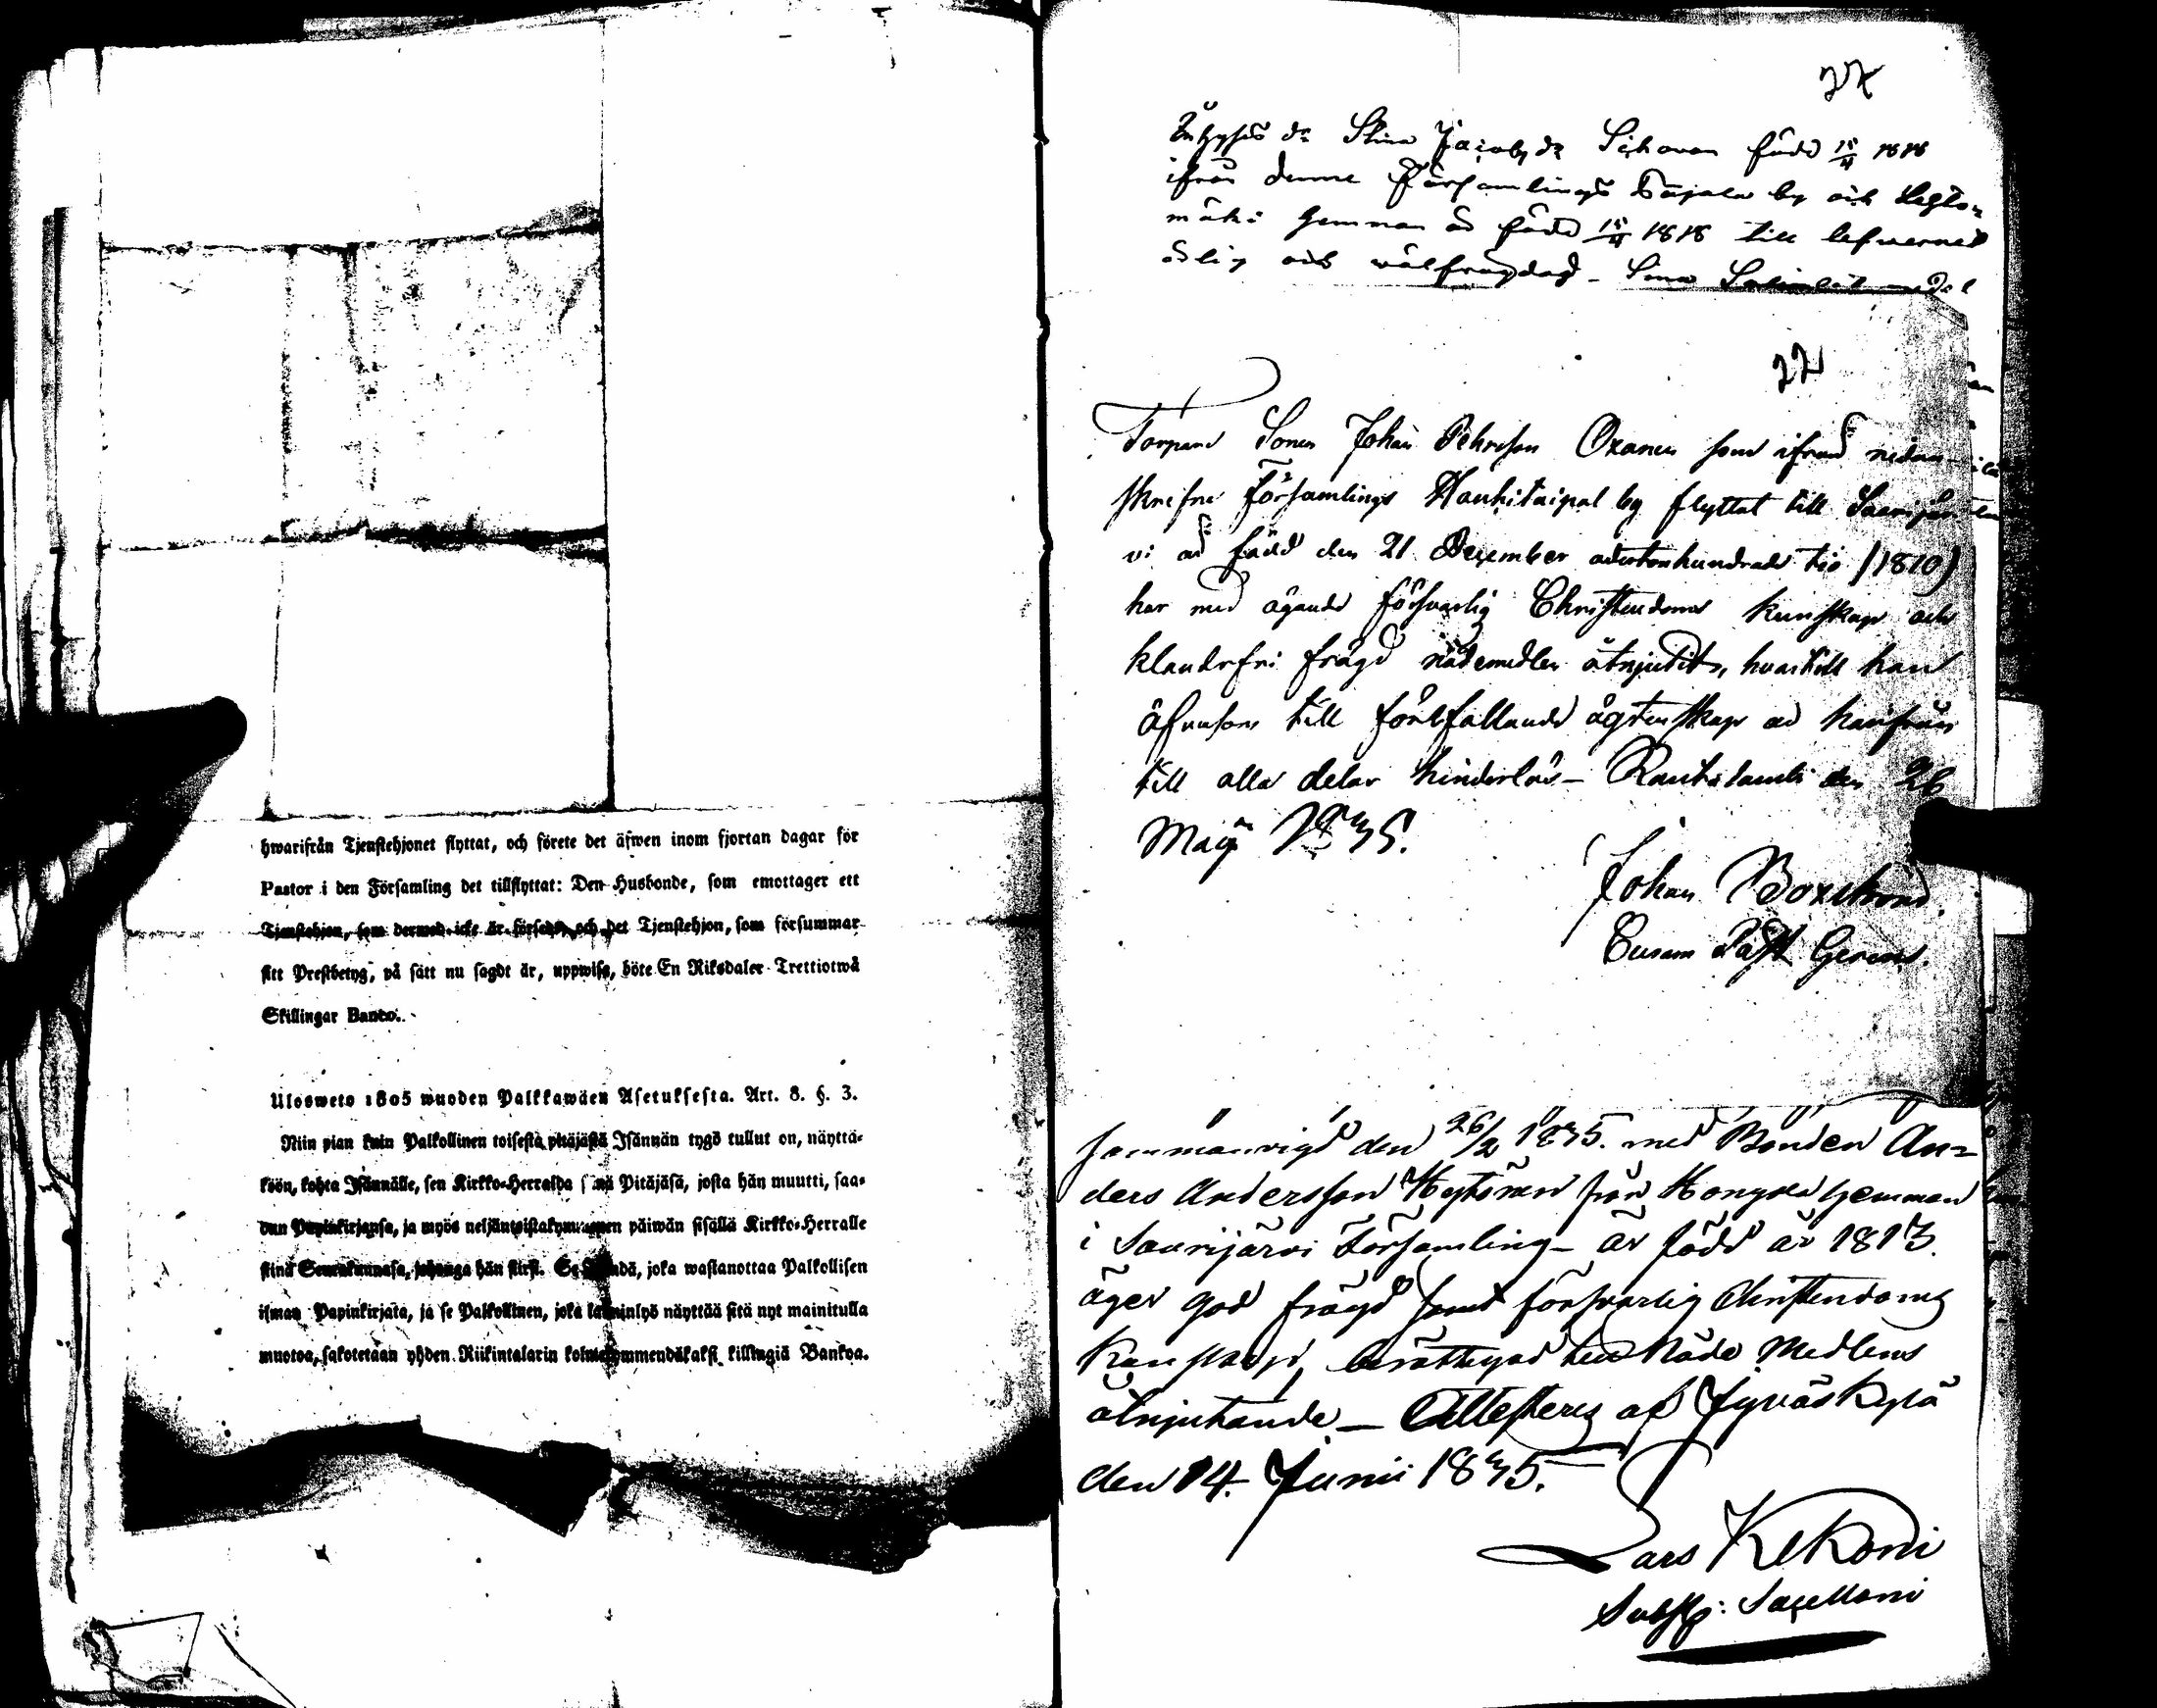 hwarifrån Tjenstehjonet flyttat, och förete det äfwen inom fjortan dagar för
Pastor i den Församling det tillflyttat: Den Husbonde, som emottager ett
Tjenstehjon, som dermed icke är försedt, och det Tjenstehjon, som försummar
sitt Prestbetyg, på sätt nu sagdt är, uppwisa, böte En Riksdaler Trettiotwå
Skillingar Banco.
Ulosweto 1805 wuoden Palkkawäen Asetuksesta. Art. 8. §. 3.
Niin pian kuin Palkollinen toisesta pitäjästä Isännän tygö tullut on, näyttä-
köön, kohta Isännälle, sen Kirkko-Herralda sinä Pitäjäsä, josta hän muutti, saa-
dun Papinkirjansa, ja myös neljäntoistakymmenen päiwän sisällä Kirkko-Herralle
siinä Seurakunnasa, johonga hän siirsi. Se Isändä, joka wastanottaa Palkollisen
ilman Papinkirjata, ja se Palkollinen, joka laiminlyö näyttää sitä nyt mainitulla
muotoa, sakotetaan yhden Riikintalarin kolmekymmendäkaksi killingiä Bankoa.
dr Stina Jacobsdr född 15/11 1818
ifrån denne Församlings by och
mäki hemman är född 15/11 1818 till lefvernet
och wälfrägdad
22
Torpare Sonen Johan Pehrsson Oxanen som ifrån nedan-
skrifne Församlings Hankitaipal by flyttat till Saarijär-
vi är född den 21 December adertonhundrade tio (1810)
har med ägande försvarlig Christendoms kunskap och
klanderfri frägd nådemedlen åtnjutit, hvartill han
äfvensom till förefallande ägtenskap är härifrån
till alla delar hinderlös – Rautalambi den 26
Maji 1835.
Johan Boxström.
Curam Past Gerens.
Sammanvigd den 26/2 1835. med Bonden An=
ders Andersson Hytönen från hemman
i Saarijärvi Församling – är född år 1813.
äger god frägd samt försvarlig Christendoms
Kunskap, berättigad till Nåde Medlens
åtnjutande. – Attesteras af Jyväskylä
den 14. Junii 1835.
Lars Kekoni
Subst: Sacellani